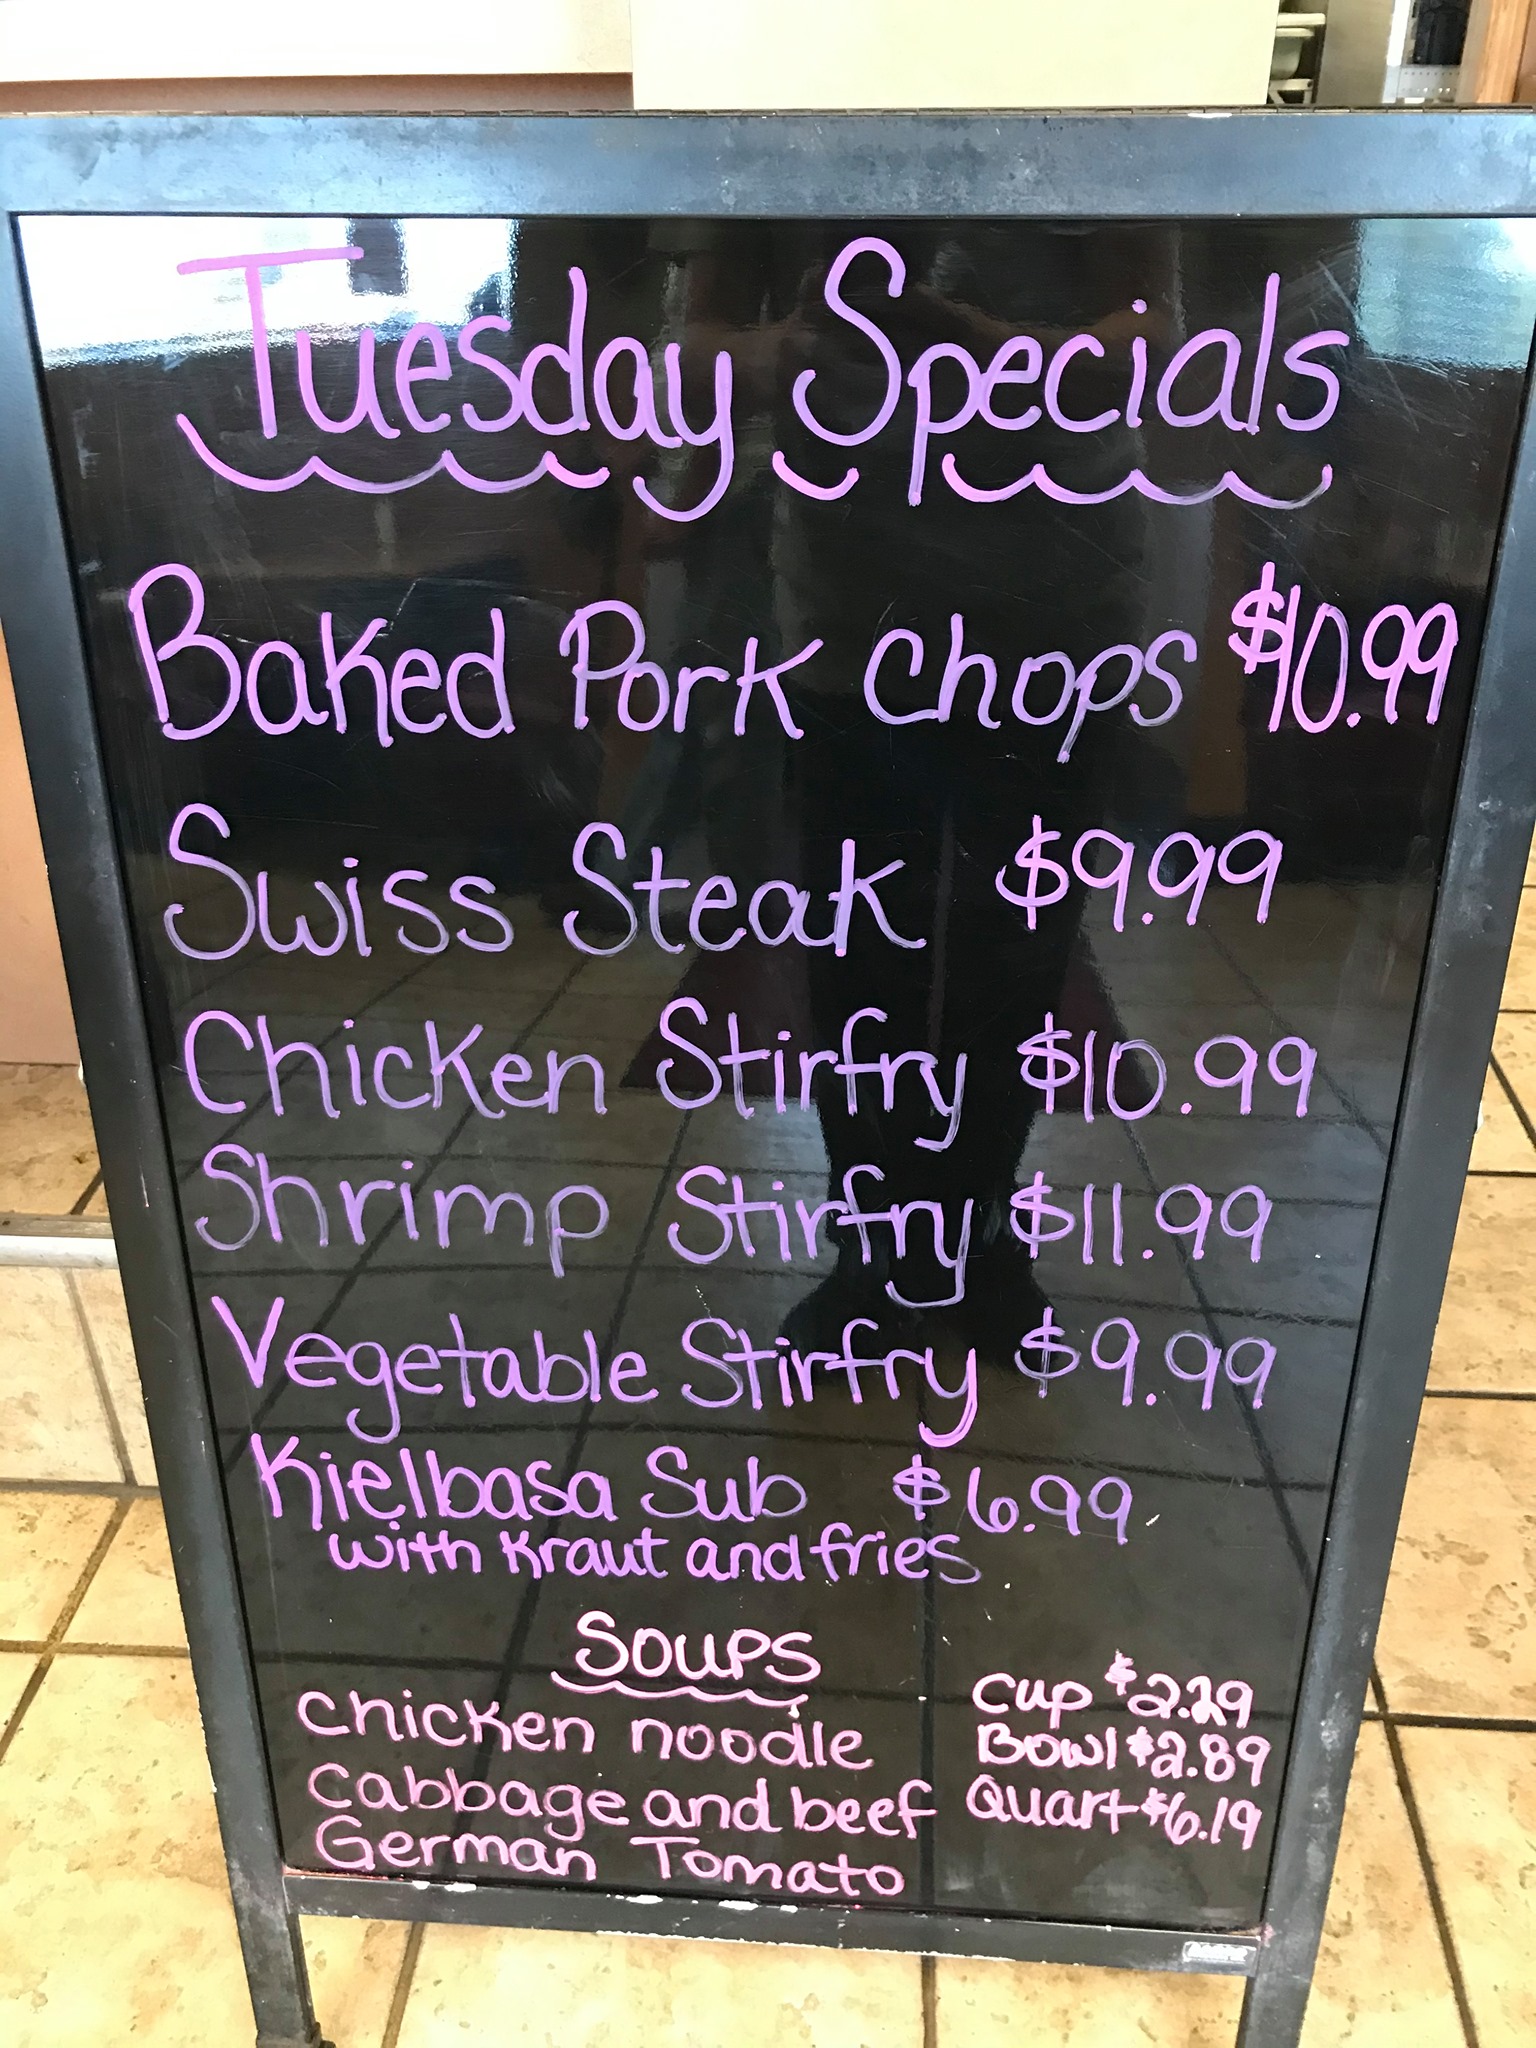 Tuesday Specials
Baked Pork Chops $10.99
Swiss Steak $9.99
Chicken Stirfry $10.99
Shrimp Stirfry $11.99
Vegetable Stirfry $9.99
Kielbasa Sub $6.99
with Kraut and fries
Soups
Chicken noodle
Cabbage and beef
German Tomato
Cup $2.29
Bowl $2.89
Quart $6.19